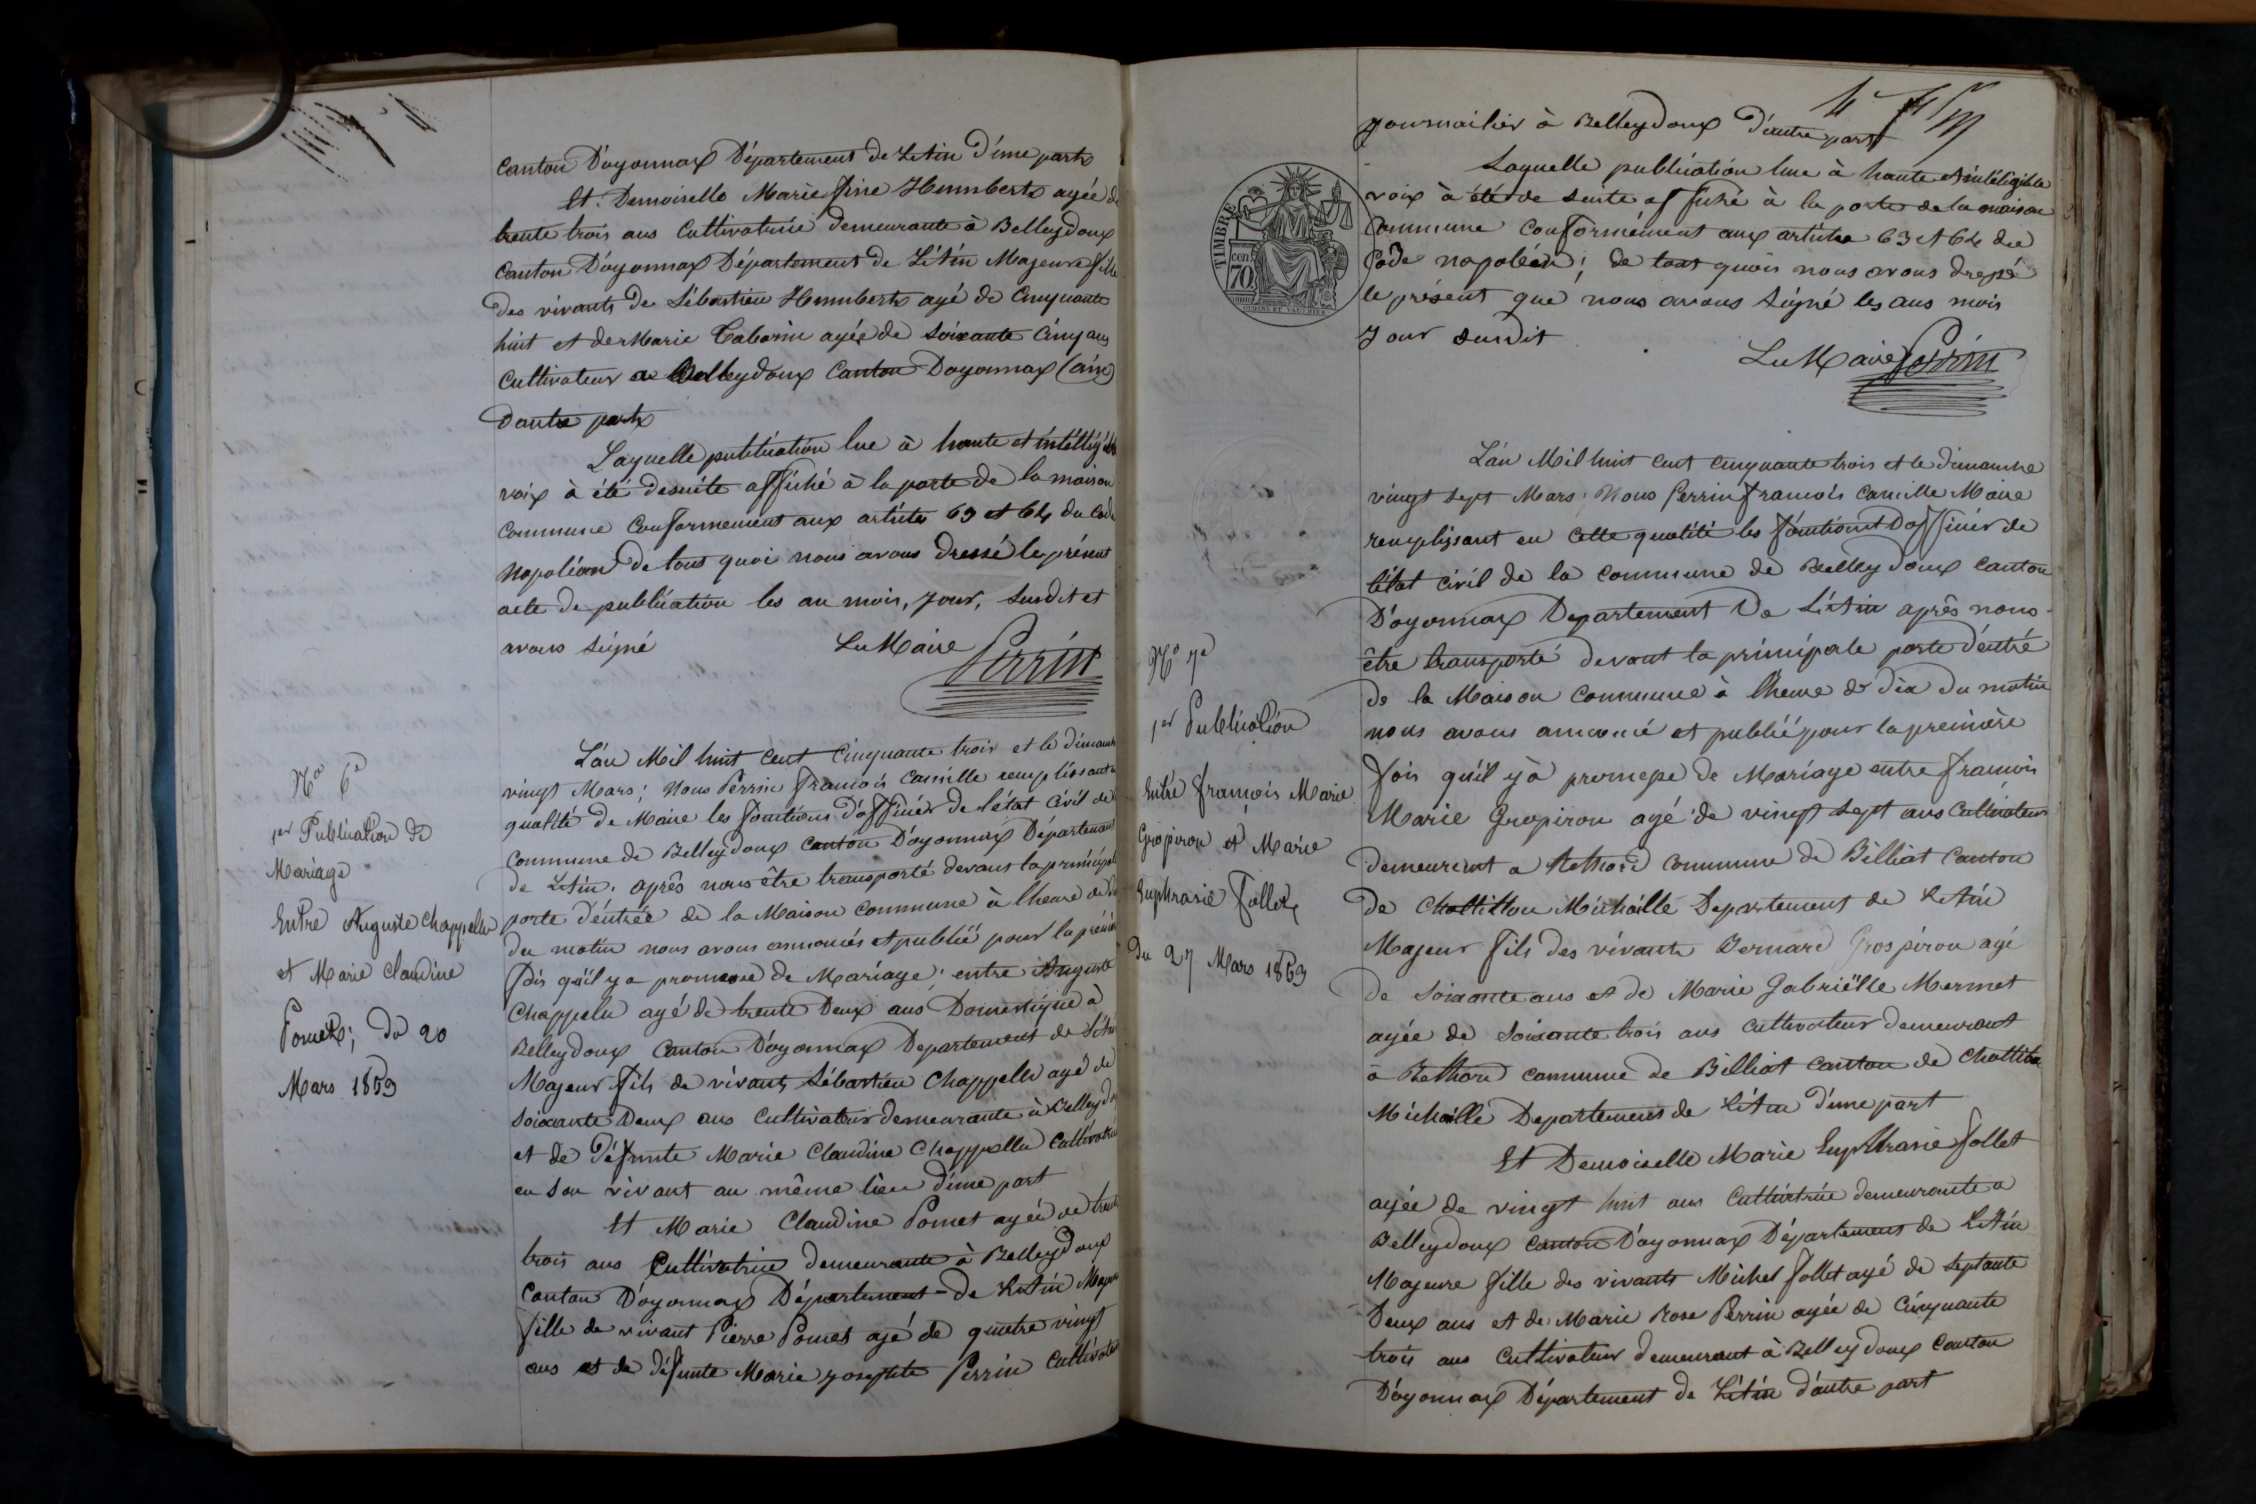 canton D'oyonnax Département de L'Ain d'une part
Et Demoiselle Marie fine Hummbert agée de
trente trois ans Cultivatrice demeurante à Belleydoux
Canton D'oyonnax Département de L'Ain Majeure fille
des vivants de Sébastien Hummbert agé de Cinquante
huit et de Marie Tabourin agée de soixante cinq ans
cultivateur a Belleydoux Canton Doyonnax (ain)
dautre part
Laquelle publication lue à haute et intélligible
voix à été desuite affiché à la porte de la maison
commune Conformement aux articles 63 et 64 du Code
Napoléon De tous quoi nous avons dressé le présent
acte de publication les an mois, jour, susdit et
avons signé Le Maire Perrin
No 6e
1er Publication de
Mariage
Entre Auguste Chappelu
et Marie Claudine
Pomet; du 20
Mars 1853
L'an Mil huit cent cinquante trois et le dimanche
vingt Mars; Nous Perrin François Camille remplissant
qualité de Maire les fonctions d'officier de l'état civil de
Commune de Belleydoux canton D'oyonnax Département
de L'Ain. après nous être transporté devant la principal
porte d'entrée de la Maison commune à lheure de dix
du matin nous avons annoncés et publié pour la première
fois qu'il y a promesse de Mariage; entre Auguste
Chappelu agé de trente Deux ans Domestique à
Belleydoux Canton D'oyonnax Departement de L'Ain
Majeur fils de vivant Sébastien Chappelle agé de
soixante Deux ans cultivateur demeurante à Belleydoux
et de Défunte Marie Claudine Chappellu Cultivatrice
en son vivant au même lieu d'une part
Et Marie Claudine Pomet agée de trente
trois ans Cultivatrice demeurante à Belleydoux
Canton D'oyonnax Département de L'Ain Majeure
fille de vivant Pierre Pomet agé de quatre vingt
ans et de défunte Marie josephte Perrin Cultivateur
4
journailier à Belleydoux D'autre part
Laquelle publication lue à haute et intéligible
voix à été de suite affiché à la porte de la maison
Commune Conformément aux articles 63 et 64 du
Code napoléon; de tout quoi nous avons drepé
le présent que nous avons signé les ans mois
Jour susdit
Le Maire Perrin
TIMBRE
70
No 7e
1er Publication
Entre françois Marie
Gropiron et Marie
Euphrasie Follet
Du 27 Mars 1853
L'an Mil huit cent cinquante trois et le dimanche
vingt sept Mars; Nous Perrin françois Camille Maire
remplissant en cette qualité les fonctions D'officier de
l'état civil de la commune de Belleydoux canton
D'oyonnax Departement De L'Ain après nous
être transporté devant la principale porte d'entré
de la Maison commune à lheure de dix du matin
nous avons annoncé et publié pour la première
fois qu'il y à promepe de Mariage entre françois
Marie Gropiron agé de vingt sept ans Cultivateur
demeurent a Rethord commune de Billiat canton
de Chattillon Michaille Departement de L'Ain
Majeur fils des vivants Bernard Grospiron agé
de soixante ans et de Marie Gabriëlle Mermet
agée de soixante trois ans cultivateur demeurant
à Rethord commune de Billiat canton de Chattillon
Michaille Departement de L'Ain d'une part
Et Demoiselle Marie Euphrasie follet
agée de vingt huit ans Cultivatrice demeurante a
Belleydoux canton D'oyonnax Département de L'Ain
Majeure fille des vivants Michel follet agé de septante
Deux ans et de Marie Rose Perrin agée de Cinquante
trois ans cultivateur demeurant à Belleydoux canton
D'oyonnax Département de L'Ain d'autre part